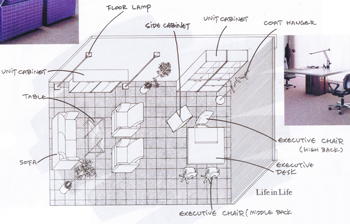 FLOOR LAMP
SIDE CABINET
UNIT CABINET
COAT HANGER
UNIT CABINET
TABLE
SOFA
EXECUTIVE CHAIR
(HIGH BACK)
EXECUTIVE
DESK
Life in Life
EXECUTIVE CHAIR (MIDDLE BACK